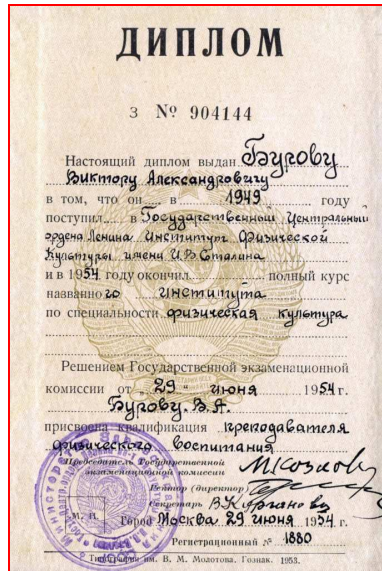 ДИПЛОМ
З № 904144
Настоящий диплом выдан Бугову
Виктору Александровичу
в том, что он в 1949 году
поступил в Государственный Центральный
ордена Ленина Институт Физической
Культуры имени И.В.Сталина
и в 1954 году окончил полный курс
названного института
по специальности физическая культура
Решением Государственной экзаменационной
комиссии от 29 июня 1954 г.
Бугову. В.А.
присвоена квалификация преподавателя
физического воспитания
Председатель Государственной
экзаменационной комиссии
Ректор (директор)
Секретарь
М. П. Город Москва 29 июня 1954 г.
Регистрационный № 1880
Типография им. В. М. Молотова. Гознак. 1953.